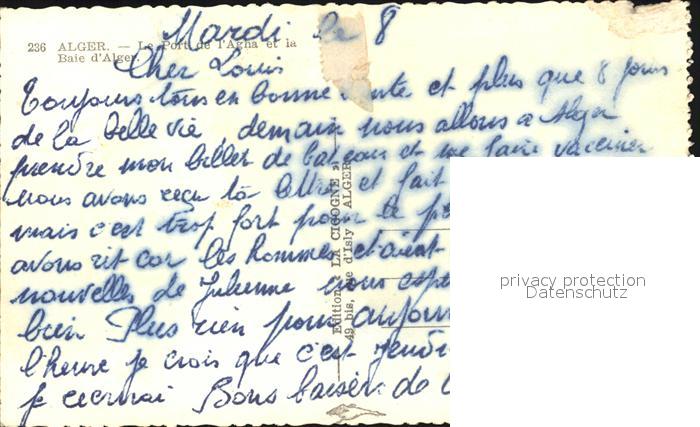 Mardi le 8
236 ALGER. — Le Port de l'Agha et la
Baie d'Alger.
Cher Louis
Toujours tous en bonne santé et plus que 8 jours
de la belle vie, demain nous allons a Alger
prendre mon billet de bateau et me faire vacciner
nous avons reçu ta lettre et fait
mais c'est trop fort pour te
avons rit car les hommes
nouvelles de Julienne nous
bien Plus rien pour aujour
l'heure je crois que c'est
je Bons baisers de
Editions LA CIGOGNE
49 bis, rue d'Isly ALGER
privacy protection
Datenschutz